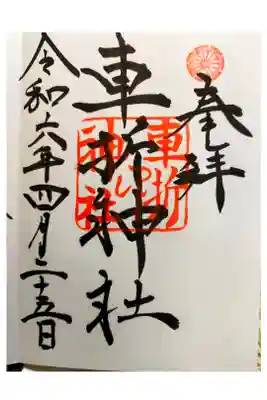 奉拝
車折神社
令和六年四月二十五日